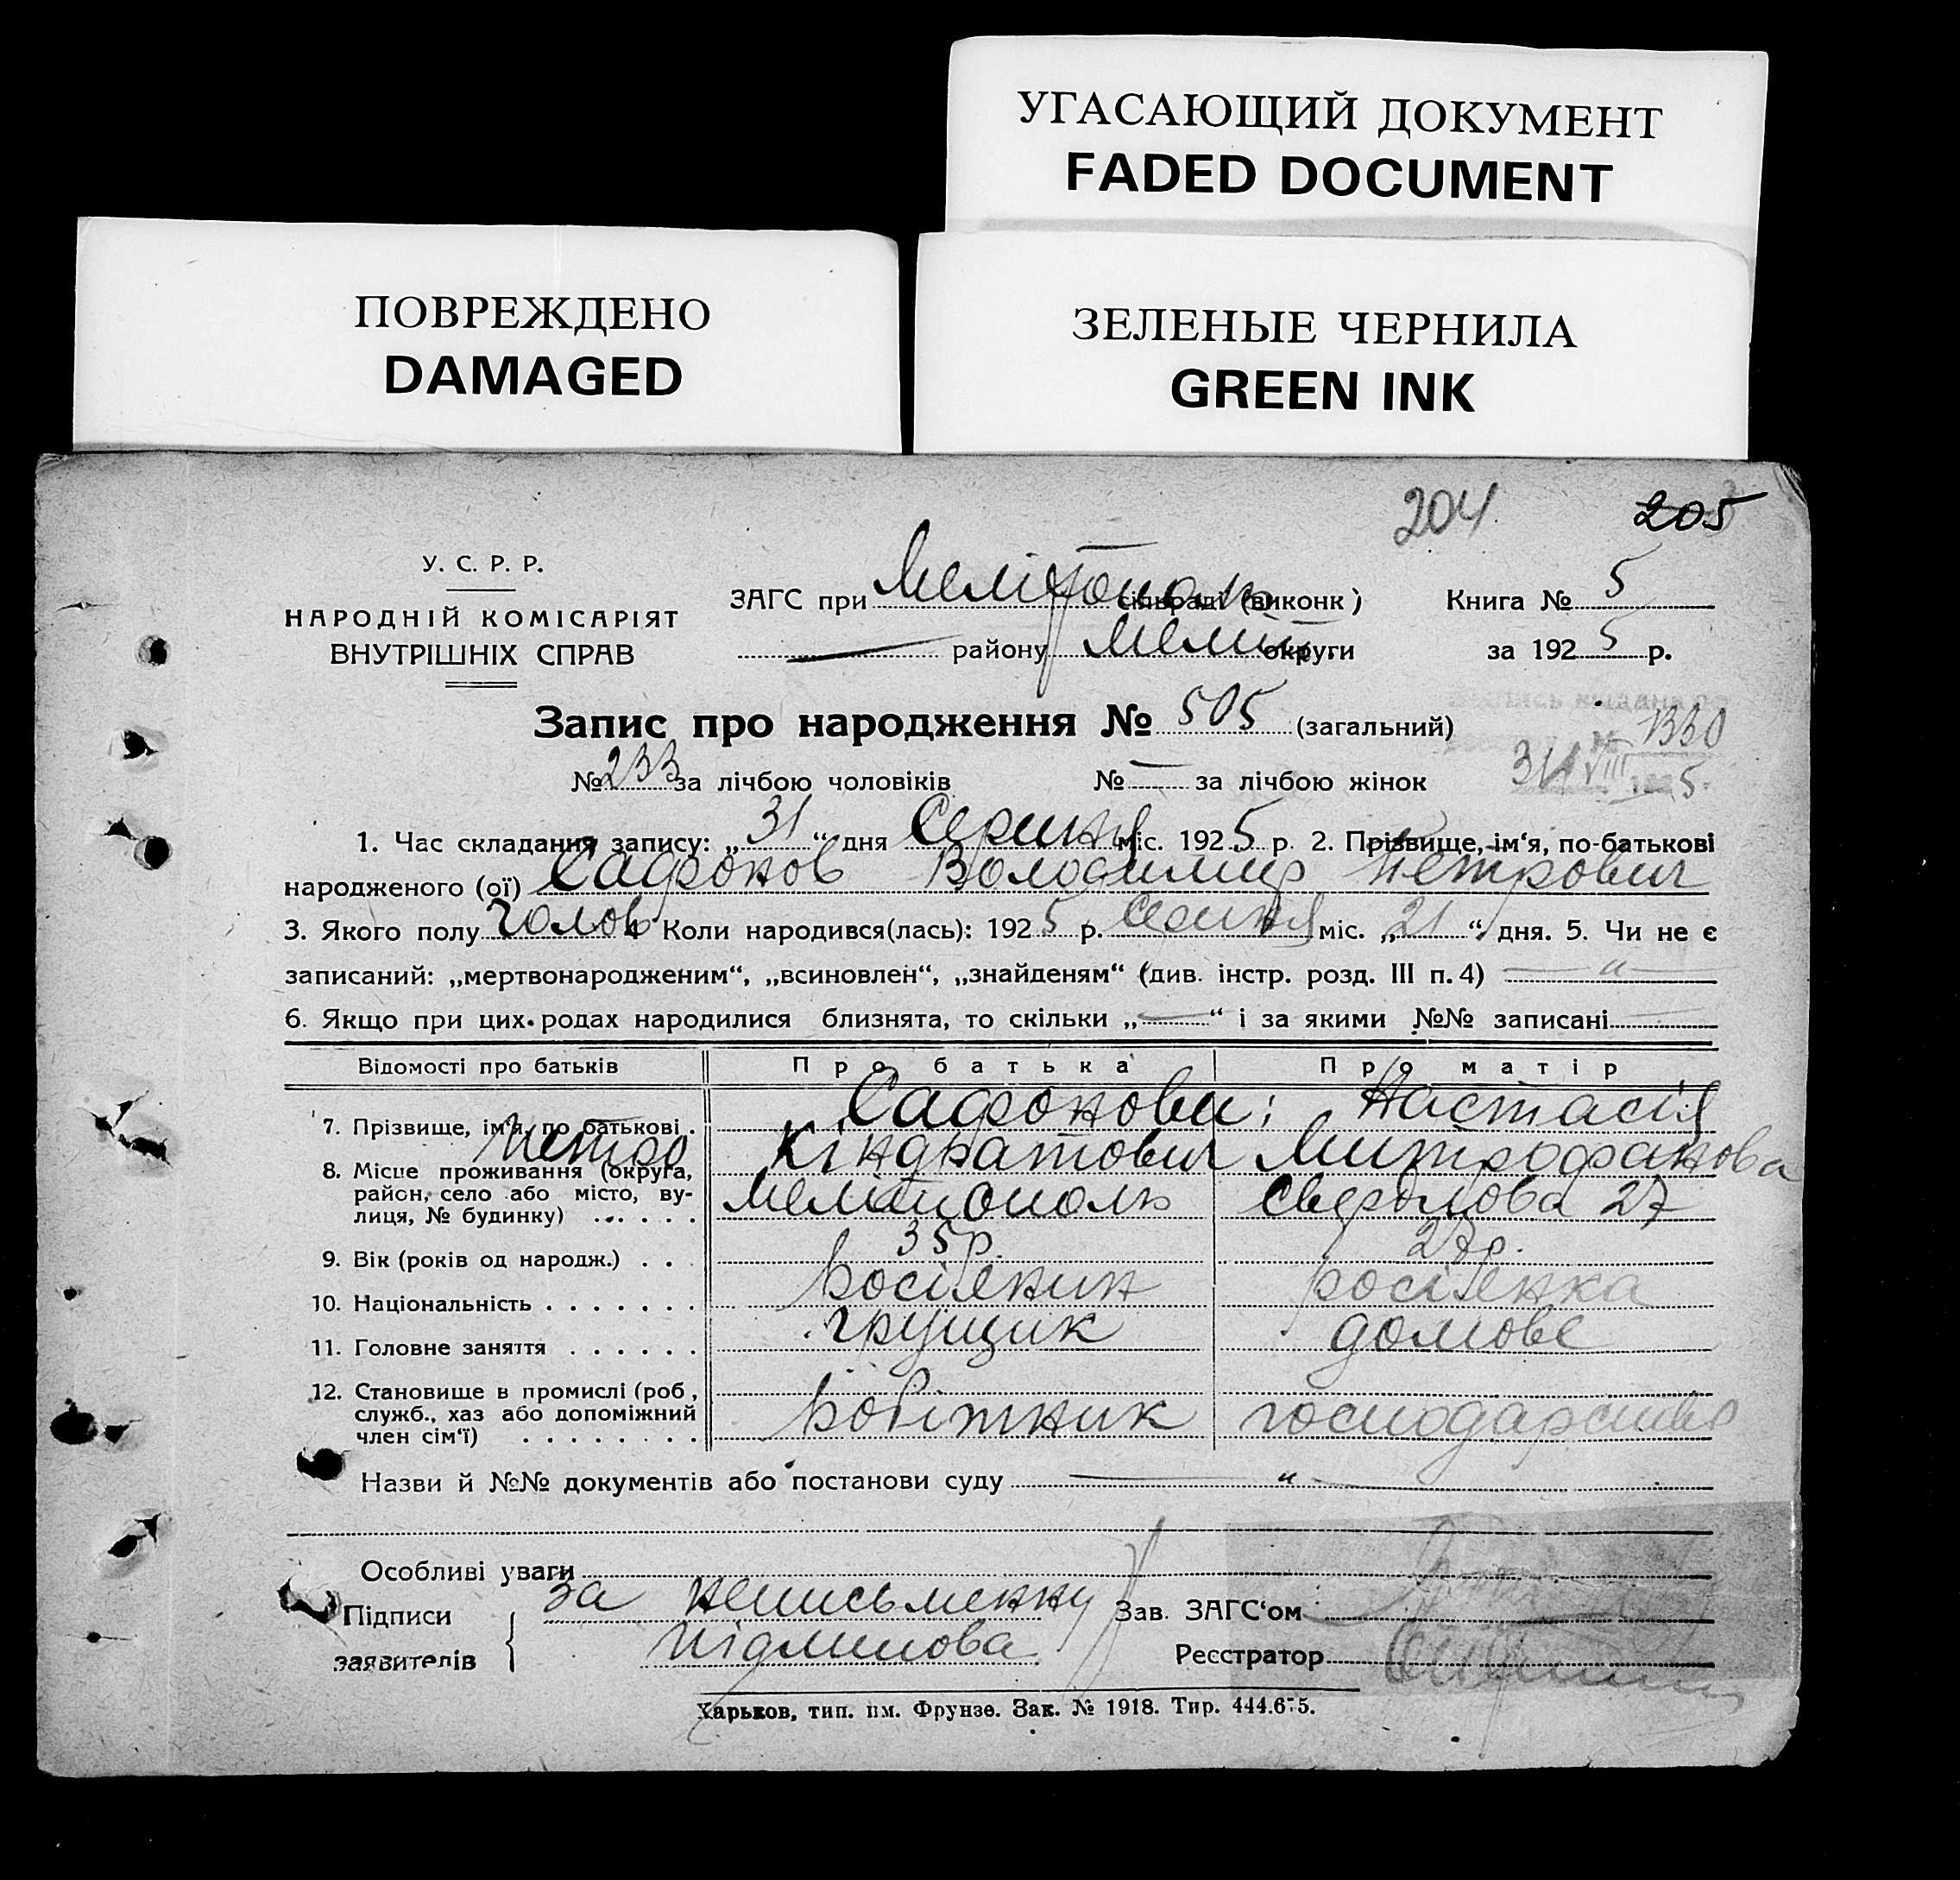 УГАСАЮЩИЙ ДОКУМЕНТ
FADED DOCUMENT
ПОВРЕЖДЕНО
DAMAGED
ЗЕЛЕНЫЕ ЧЕРНИЛА
GREEN INK
204 205
У. С. Р. Р.
НАРОДНІЙ КОМІСАРІЯТ
ВНУТРІШНІХ СПРАВ
ЗАГС при сільраді (виконк) Книга № 5
району Меліт округи за 1925 р.
Запис про народження № 505 (загальний)
№ 1330
№ 233 за лічбою чоловіків № — за лічбою жінок
31 VIII 1925
1. Час складання запису: „31“ дня Серпня міс. 1925 р. 2. Прізвище, ім‘я, по-батькові
народженого (ої) Сафонов Володимир Петрович
3. Якого полу чолов 4 Коли народився(лась): 1925 р. Серпня міс. „21“ дня. 5. Чи не є
записаний: „мертвонародженим“, „всиновлен“, „знайденям“ (див. інстр. розд. III п. 4) — „ —
6. Якщо при цих родах народилися близнята, то скільки „—“ і за якими №№ записані —
Відомості про батьків Про батька Про матір
7. Прізвище, ім‘я, по батькові . Сафонови; Настасія
Петро Кіндратович Митрофанова
8. Місце проживання (округа,
район, село або місто, ву-
лиця, № будинку) . . . . . Мелітополь Свердлова 27
9. Вік (років од народж.) . . . 35 р. 27 р.
10. Національність . . . . . . . росіянин росіянка
11. Головне заняття . . . . . . грущик домове
12. Становище в промислі (роб,
служб., хаз або допоміжний
член сім‘ї) . . . . . . . . робітник господарство
Назви й №№ документів або постанови суду — „ —
Особливі уваги
Підписи за неписьменну Зав. ЗАГС‘ом
заявителів Реєстратор
Харьков, тип. им. Фрунзе. Зак. № 1918. Тир. 444.675.